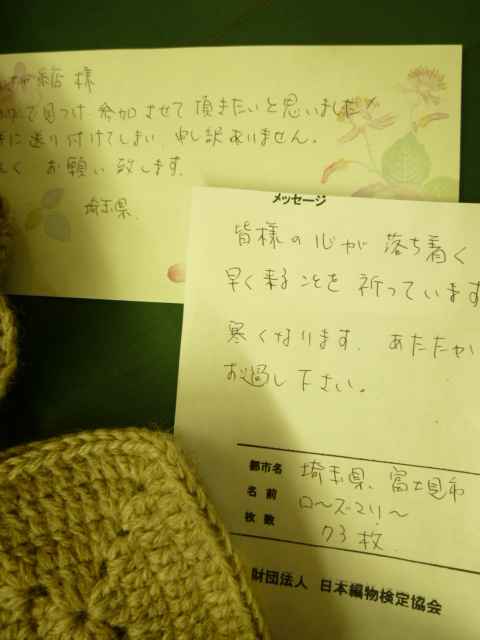 糸店 様
で見つけ 参加させて 頂きたいと思いました
に送り付けてしまい 申し訳ありません。
お願い致します。
埼玉県
メッセージ
皆様の心が 落ち着く
早く来ることを 祈っています
寒くなります。 あたたかい
お過し下さい。
都市名 埼玉県、富士見市
名前 ローズマリー
枚数 73枚
財団法人 日本編物検定協会